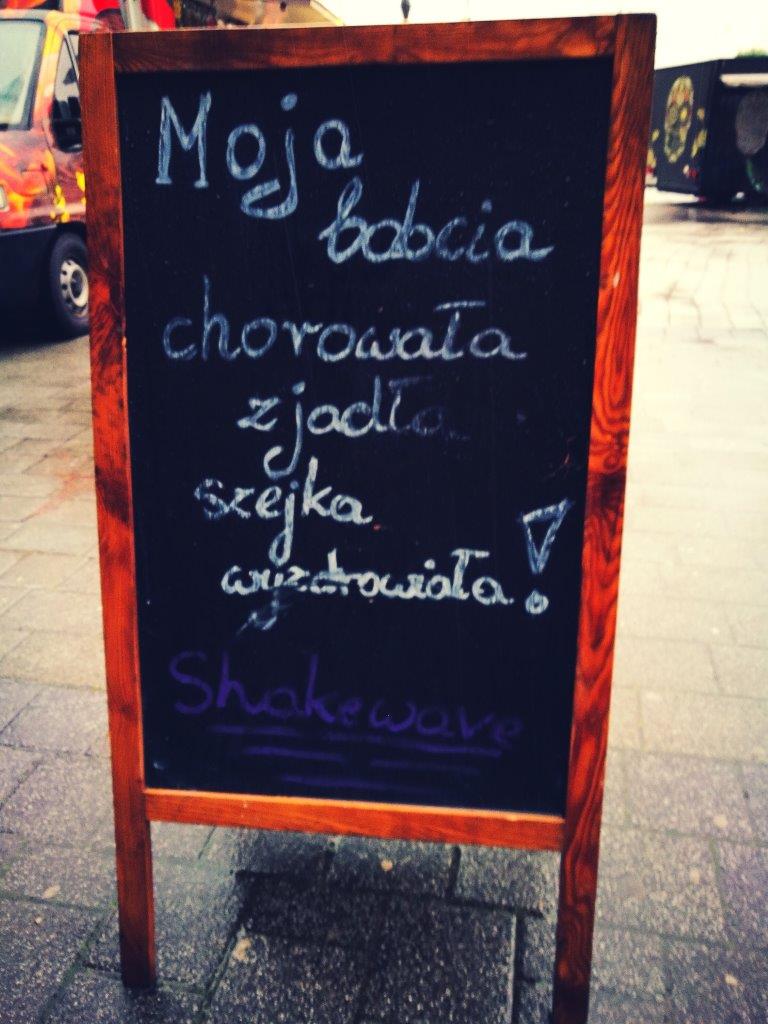 Moja
babcia
chorowała
zjadła
szejka
wyzdrowiała!
Shakewave